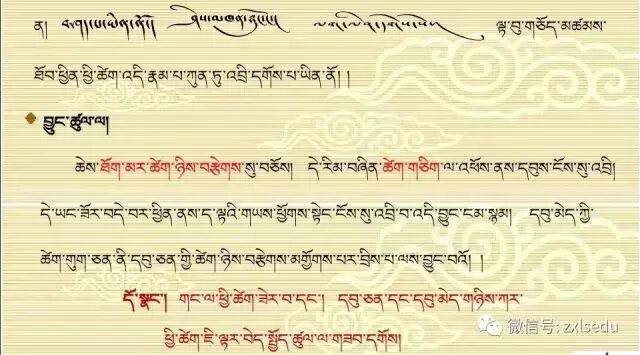 ན། ལྟ་བུ་གཅོད་མཚམས་
ཐོབ་ཕྱིན་ཕྱི་ཚེག་འདི་རྣམ་པ་ཀུན་ཏུ་འབྲི་དགོས་པ་ཡིན་ནོ། །
བྱུང་ཚུལ་ལ།
ཆེས་ཐོག་མར་ཚེག་ཉིས་བརྩེགས་སུ་བཅོས། དེ་རིམ་བཞིན་ཚེག་གཅིག་ལ་འཕོས་ནས་དབུས་ངོས་སུ་འབྲི།
དེ་ཡང་ཟོར་བདེ་བར་ཕྱིན་ནས་ད་ལྟའི་གཡས་ཕྱོགས་སྟེང་ངོས་སུ་འབྲི་བ་འདི་བྱུང་ངམ་སྙམ། དབུ་མེད་ཀྱི་
ཚེག་གུག་ཅན་ནི་དབུ་ཅན་གྱི་ཚེག་ཉིས་བརྩེགས་མགྱོགས་པར་བྲིས་པ་ལས་བྱུང་བའོ། །
དོ་སྣང་། གང་ལ་ཕྱི་ཚེག་ཟེར་བ་དང་། དབུ་ཅན་དང་དབུ་མེད་གཉིས་ཀར་
ཕྱི་ཚེག་ཇི་ལྟར་བེད་སྤྱོད་ཚུལ་ལ་གཟབ་དགོས།
微信号: zxlsedu